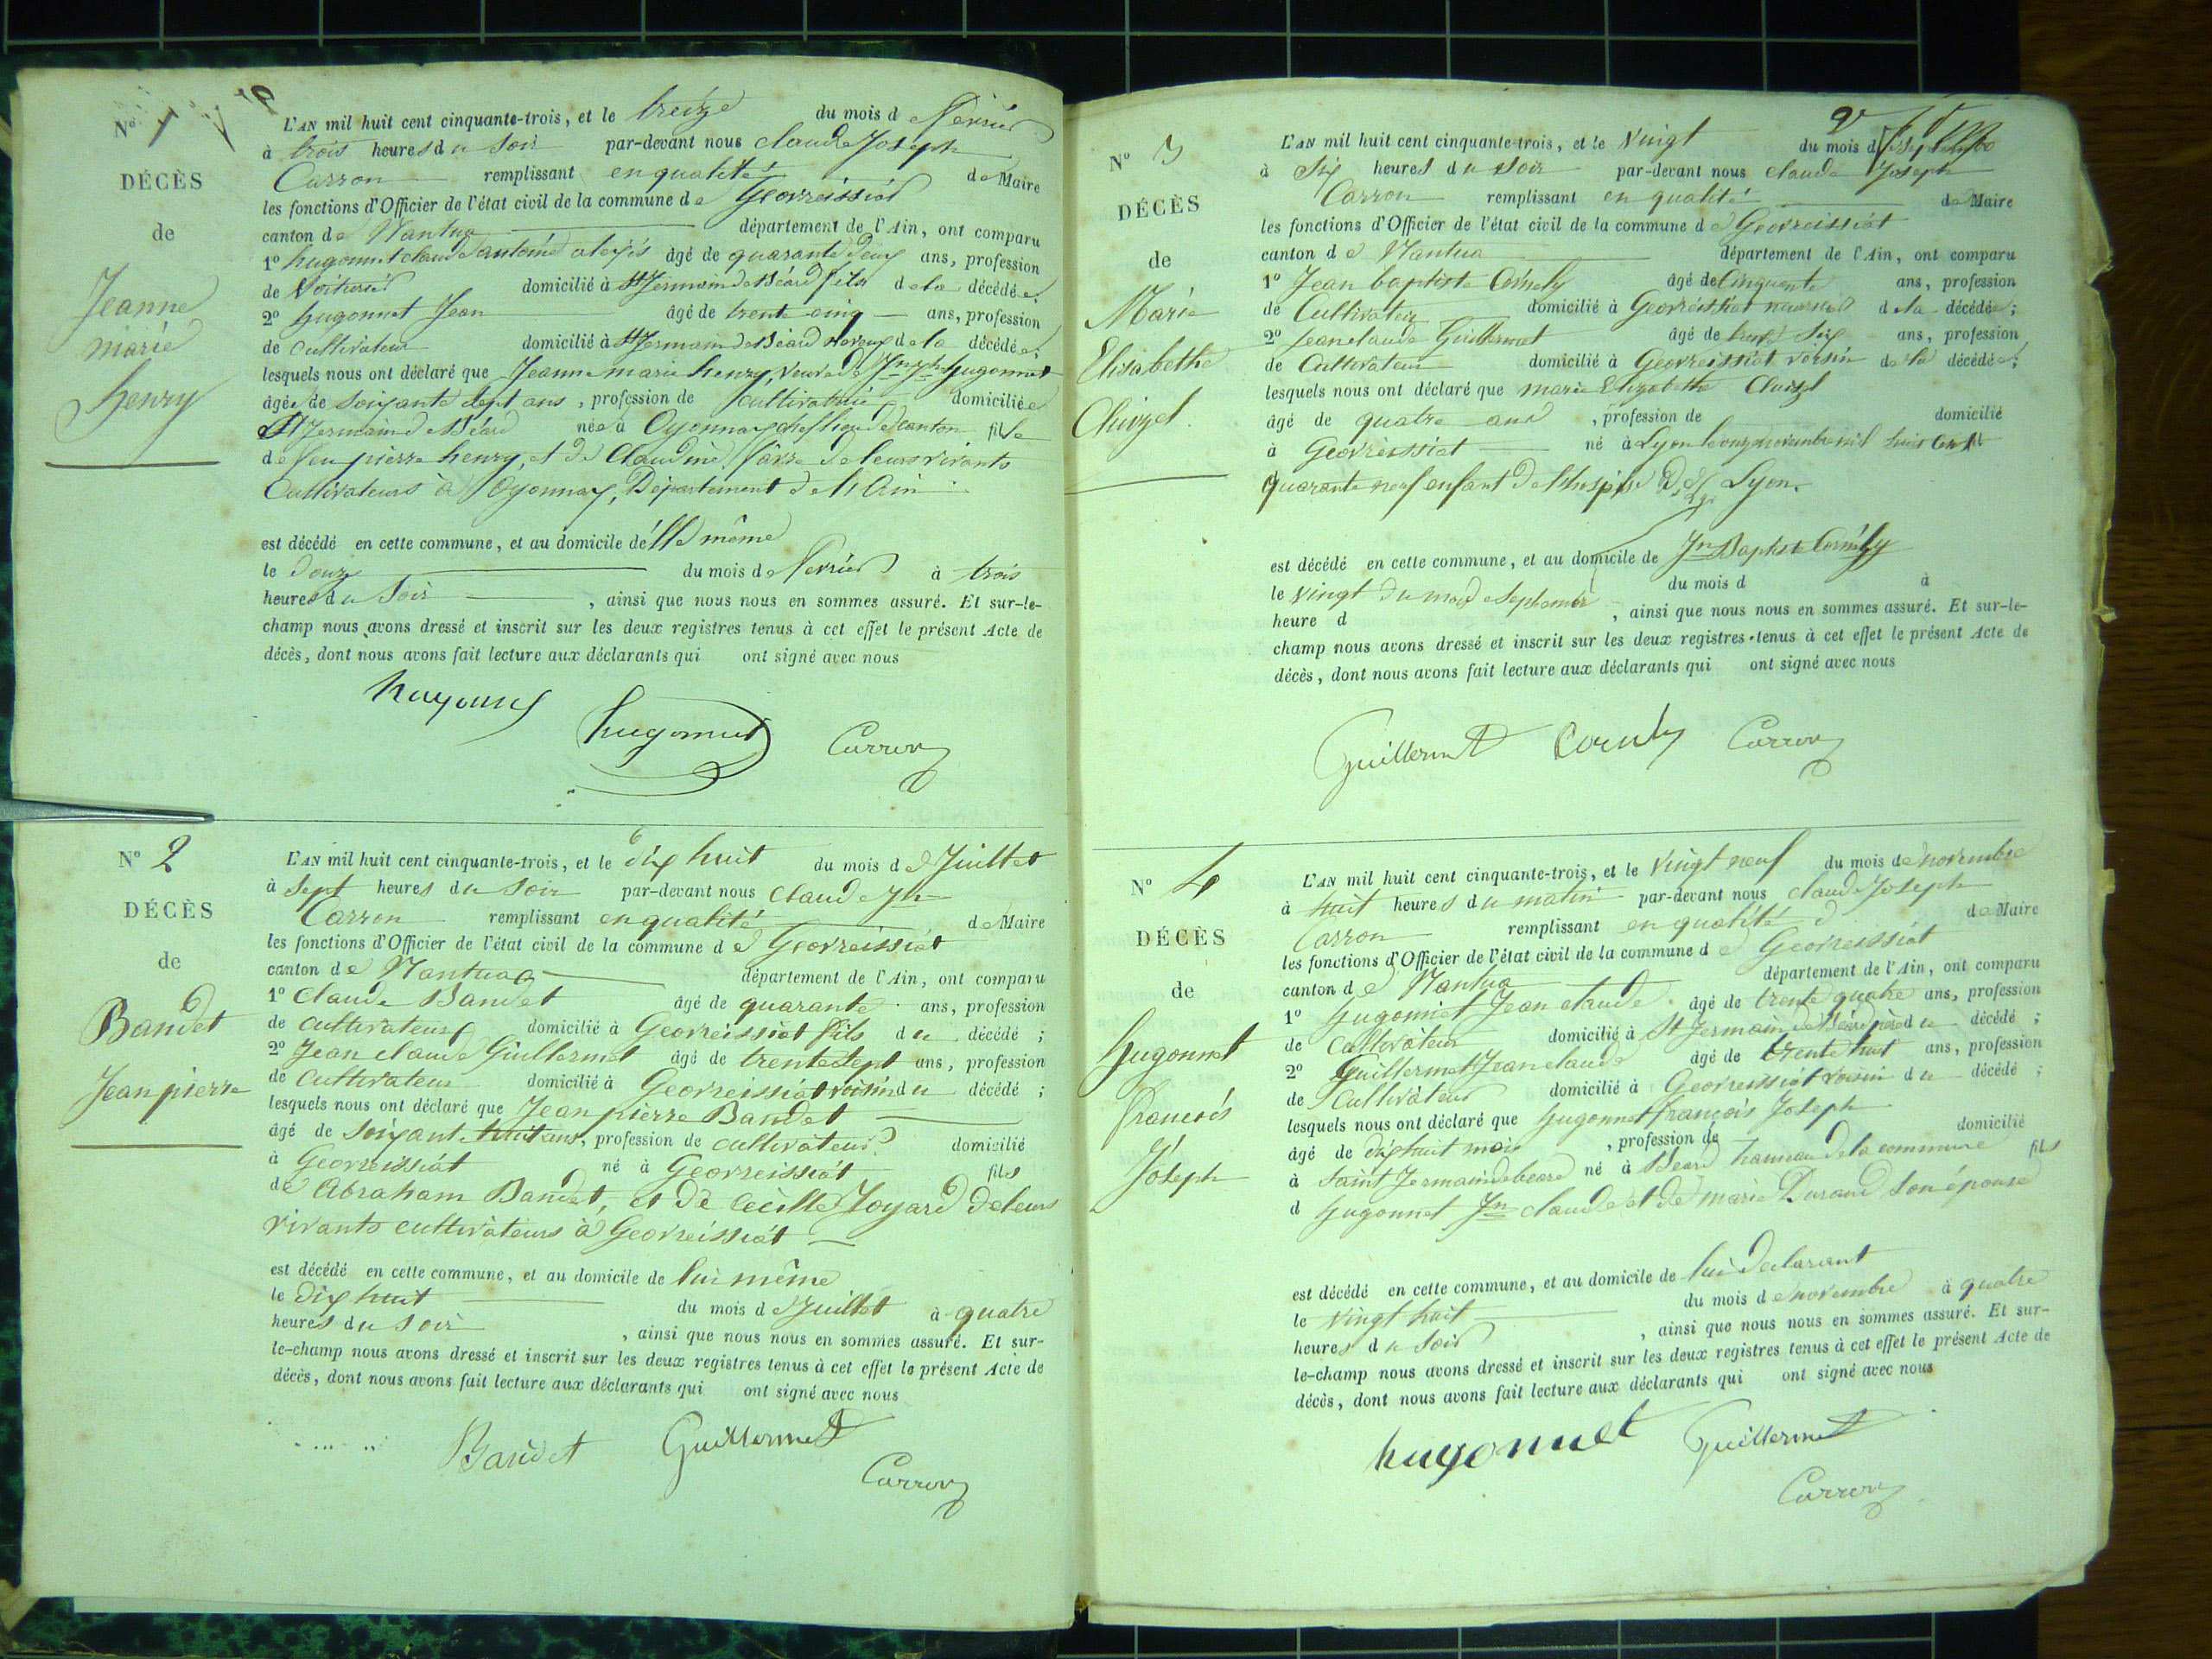 N° 1
DÉCÈS
de
Jeanne
marie
henry
L'AN mil huit cent cinquante-trois, et le treize du mois de février
à trois heures du soir par-devant nous claude Joseph
Carron remplissant en qualité de Maire
les fonctions d'Officier de l'état civil de la commune de Géovreissiat
canton de Nantua département de l'Ain, ont comparu
1° hugonnet claude antoine alexis âgé de quarante deux ans, profession
de Voiturier domicilié à St Jermain de Béard fils de la décédée,
2° hugonnet Jean âgé de trente cinq ans, profession
de cultivateur domicilié à St Jermain de Béard neveu de la décédée;
lesquels nous ont déclaré que Jeanne marie henry, veuve de Jn Jph hugonnet
âgée de soixante sept ans, profession de cultivatrice domiciliée
à St Jermain de Béard née à Oyonnax chef lieu de canton fille
de feu pierre henry, et de Claudine favre de leurs vivants
Cultivateurs à Oyonnax, Département de l'Ain
est décédé en cette commune, et au domicile de elle même
le douze du mois de février à trois
heures du soir, ainsi que nous nous en sommes assuré. Et sur-le-
champ nous avons dressé et inscrit sur les deux registres tenus à cet effet le présent Acte de
décès, dont nous avons fait lecture aux déclarants qui ont signé avec nous
hugonnet
hugonnet Carron
N° 2
DÉCÈS
de
Baudet
Jean pierre
L'AN mil huit cent cinquante-trois, et le dix huit du mois de Juillet
à sept heures du soir par-devant nous claude Jph
Carron remplissant en qualité de Maire
les fonctions d'Officier de l'état civil de la commune de Géovreissiat
canton de Nantua département de l'Ain, ont comparu
1° Claude Baudet âgé de quarante ans, profession
de cultivateur domicilié à Géovreissiat fils du décédé ;
2° Jean claude Guillermet âgé de trente sept ans, profession
de cultivateur domicilié à Géovreissiat voisin du décédé ;
lesquels nous ont déclaré que Jean pierre Baudet
âgé de soixante huit ans, profession de cultivateur domicilié
à Géovreissiat né à Géovreissiat fils
de Abraham Baudet, et de Cécille Joyard de leurs
vivants cultivateurs à Géovreissiat
est décédé en cette commune, et au domicile de lui même
le dix huit du mois de Juillet à quatre
heures du soir, ainsi que nous nous en sommes assuré. Et sur-
le-champ nous avons dressé et inscrit sur les deux registres tenus à cet effet le présent Acte de
décès, dont nous avons fait lecture aux déclarants qui ont signé avec nous
Baudet Guillermet
Carron
2
N° 3
DÉCÈS
de
Marie
Elisabethe
Chuizel
L'AN mil huit cent cinquante-trois, et le Vingt du mois de septembre
à Six heures du soir par-devant nous claude Joseph
Carron remplissant en qualité de Maire
les fonctions d'Officier de l'état civil de la commune de Géovreissiat
canton de Nantua département de l'Ain, ont comparu
1° Jean baptiste Cornely âgé de Cinquante ans, profession
de Cultivateur domicilié à Géovreissiat de la décédée ;
2° Jean claude Guillermet âgé de trente Six ans, profession
de Cultivateur domicilié à Géovreissiat voisin de la décédée ;
lesquels nous ont déclaré que marie Elizabethe Chuizel
âgé de quatre ans, profession de domicilié
à Géovreissiat né à Lyon le onze novembre mil huit Cent
quarante neuf enfant de l'huspise de Lyon.
est décédé en cette commune, et au domicile de Jn Baptist Cornely
le vingt du mois de septembre du mois d à
heure d, ainsi que nous nous en sommes assuré. Et sur-le-
champ nous avons dressé et inscrit sur les deux registres tenus à cet effet le présent Acte de
décès, dont nous avons fait lecture aux déclarants qui ont signé avec nous
Guillermet Cornely Carron
N° 4
DÉCÈS
de
hugonnet
francois
Joseph
L'AN mil huit cent cinquante-trois, et le Vingt neuf du mois de novembre
à huit heures du matin par-devant nous claude Joseph
Carron remplissant en qualité de Maire
les fonctions d'Officier de l'état civil de la commune de Géovreissiat
canton de Nantua département de l'Ain, ont comparu
1° hugonnet Jean claude âgé de trente quatre ans, profession
de Cultivateur domicilié à St Jermain de Béard père du décédé ;
2° Guillermet Jean claude âgé de trente huit ans, profession
de Cultivateur domicilié à Géovreissiat voisin du décédé ;
lesquels nous ont déclaré que hugonnet françois Joseph
âgé de dix huit mois, profession de domicilié
à saint Jermain de beard né à Béard hameau de la commune fils
d hugonnet Jn claude et de marie Durand son épouse
est décédé en cette commune, et au domicile de lui déclarant
le Vingt huit du mois de novembre à quatre
heures du soir, ainsi que nous nous en sommes assuré. Et sur-
le-champ nous avons dressé et inscrit sur les deux registres tenus à cet effet le présent Acte de
décès, dont nous avons fait lecture aux déclarants qui ont signé avec nous
hugonnet Guillermet
Carron